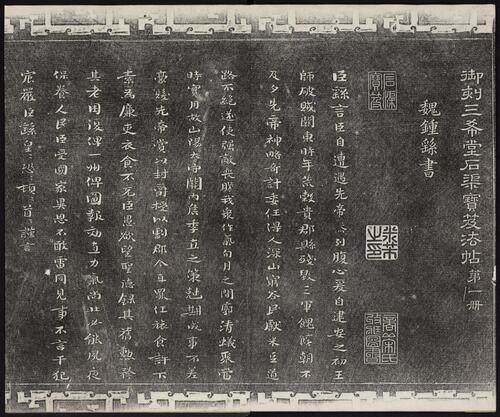 御刻三希堂石渠寶笈法帖第一冊
魏鍾繇書
臣繇言臣自遭遇先帝忝列腹心爰自建安之初王
師破賊關東時年荒穀貴郡縣殘毀三軍餽饟朝不
及夕先帝神略奇計委任得人深山窮谷民獻米豆道
路不絕遂使強敵喪膽我衆作氣旬月之間廓清蟻聚當
時實用故山陽太守關內侯季直之策剋期成事不差
豪髮先帝賞以封爵授以劇郡今直罷任旅食許下
素為廉吏衣食不充臣愚欲望聖德錄其舊勳矜
其老困復俾一州俾圖報效直力氣尚壯必能夙夜
保養人民臣受國家異恩不敢雷同見事不言干犯
宸嚴臣繇皇〻恐〻頓〻首〻謹言